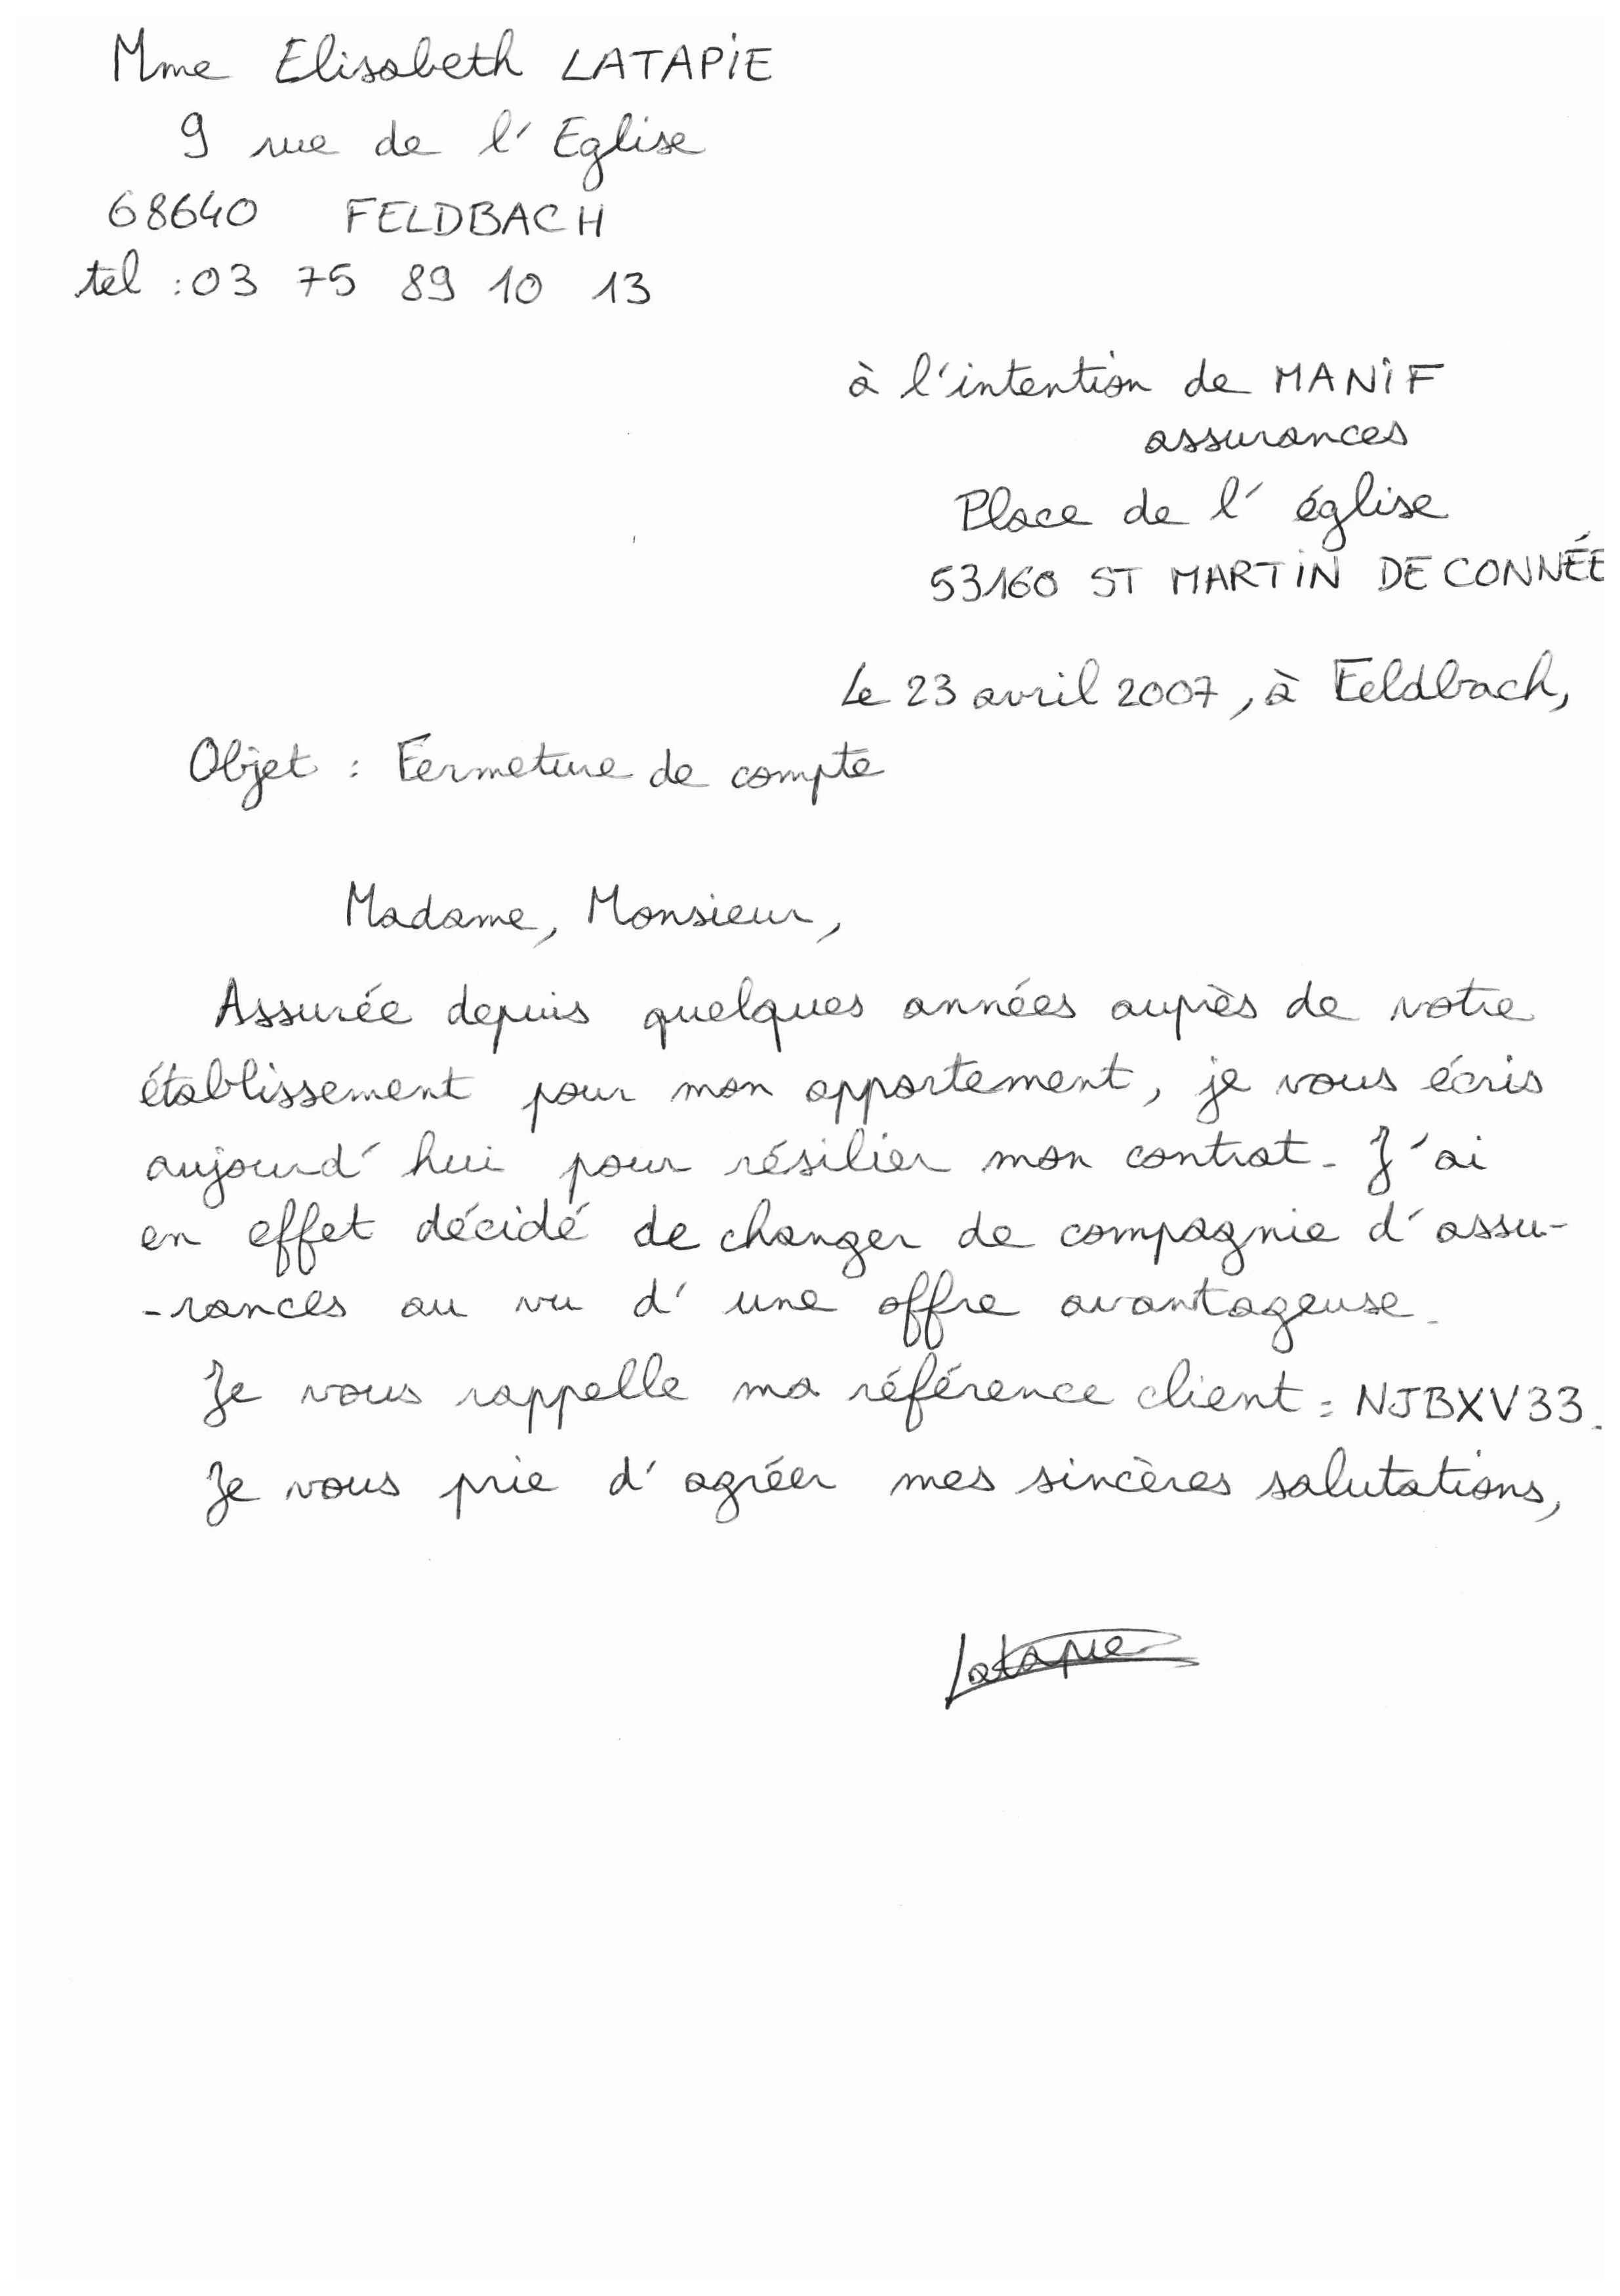 Mme Elisabeth LATAPIE
9 rue de l'Eglise
68640 FELDBACH
tel : 03 75 89 10 13
à l'intention de MANIF
assurances
Place de l'église
53160 ST MARTIN DE CONNÉE
Le 23 avril 2007, à Feldbach,
Objet : Fermeture de compte
Madame, Monsieur,
Assurée depuis quelques années auprès de votre
établissement pour mon appartement, je vous écris
aujourd'hui pour résilier mon contrat. J'ai
en effet décidé de changer de compagnie d'assu-
-rances au vu d'une offre avantageuse.
Je vous rappelle ma référence client : NJBXV33.
Je vous prie d'agréer mes sincères salutations,
Latapie